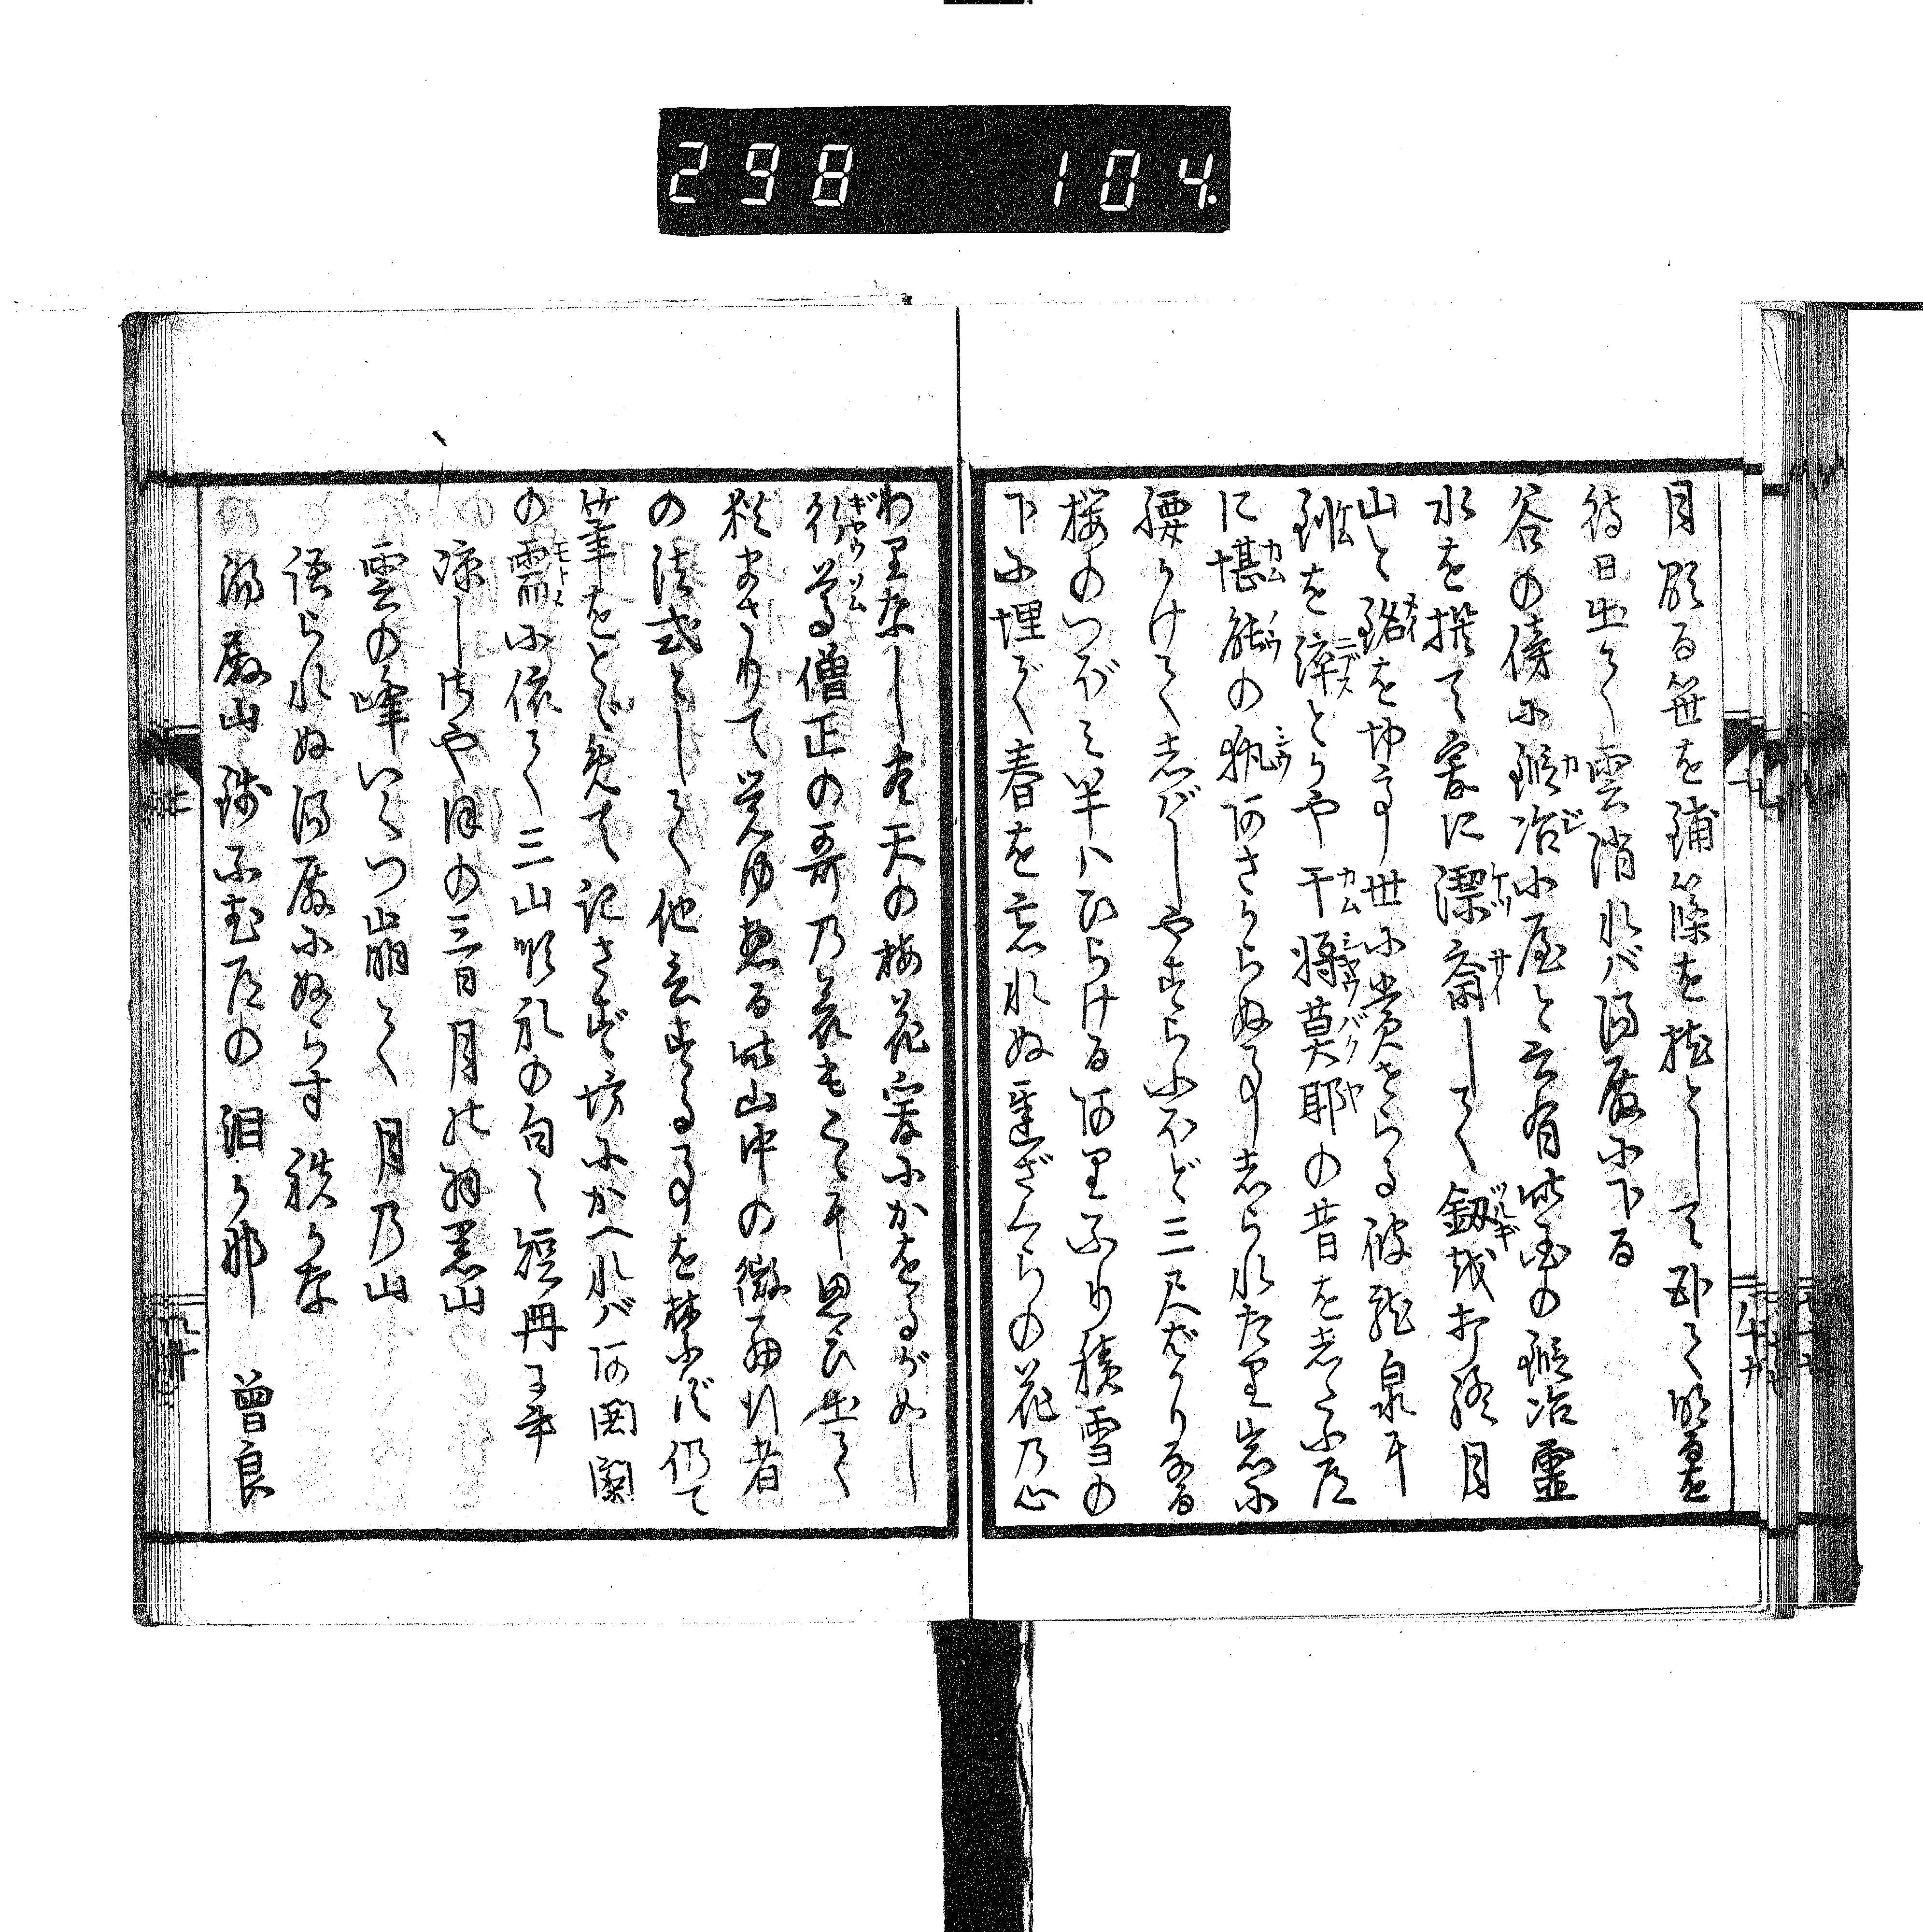 298 104
月顕る笹を鋪篠を枕として臥て明るを
待日出て雲消れバ湯殿に下る
谷の傍に鍛冶小屋と云有此国の鍛冶霊
水を撰て爰に潔斎して釼を打終月
山と銘を切て世に賞せらる彼龍泉に
釼を淬とかや干将莫耶の昔をしたふ道
に堪能の執あさからぬ事しられたり岩に
腰かけてしばしやすらふほど三尺ばかりなる
桜のつぼミ半ハひらけるありふり積雪の
下に埋て春を忘れぬ遅ざくらの花乃心
わりなし炎天の梅花爰にかをるがごとし
行尊僧正の哥乃哀もこゝに思ひ出て
猶まさりて覚ゆ惣る此山中の微細行者
の法式として他言する事を禁ず仍て
筆をとゞめて記さず坊にかへれバ阿闍梨
の需に依て三山順礼の句々短冊に書
涼しさやほの三日月の羽黒山
雲の峰いくつ崩て月乃山
語られぬ湯殿にぬらす袂かな
湯殿山銭ふむ道の泪か那 曾良